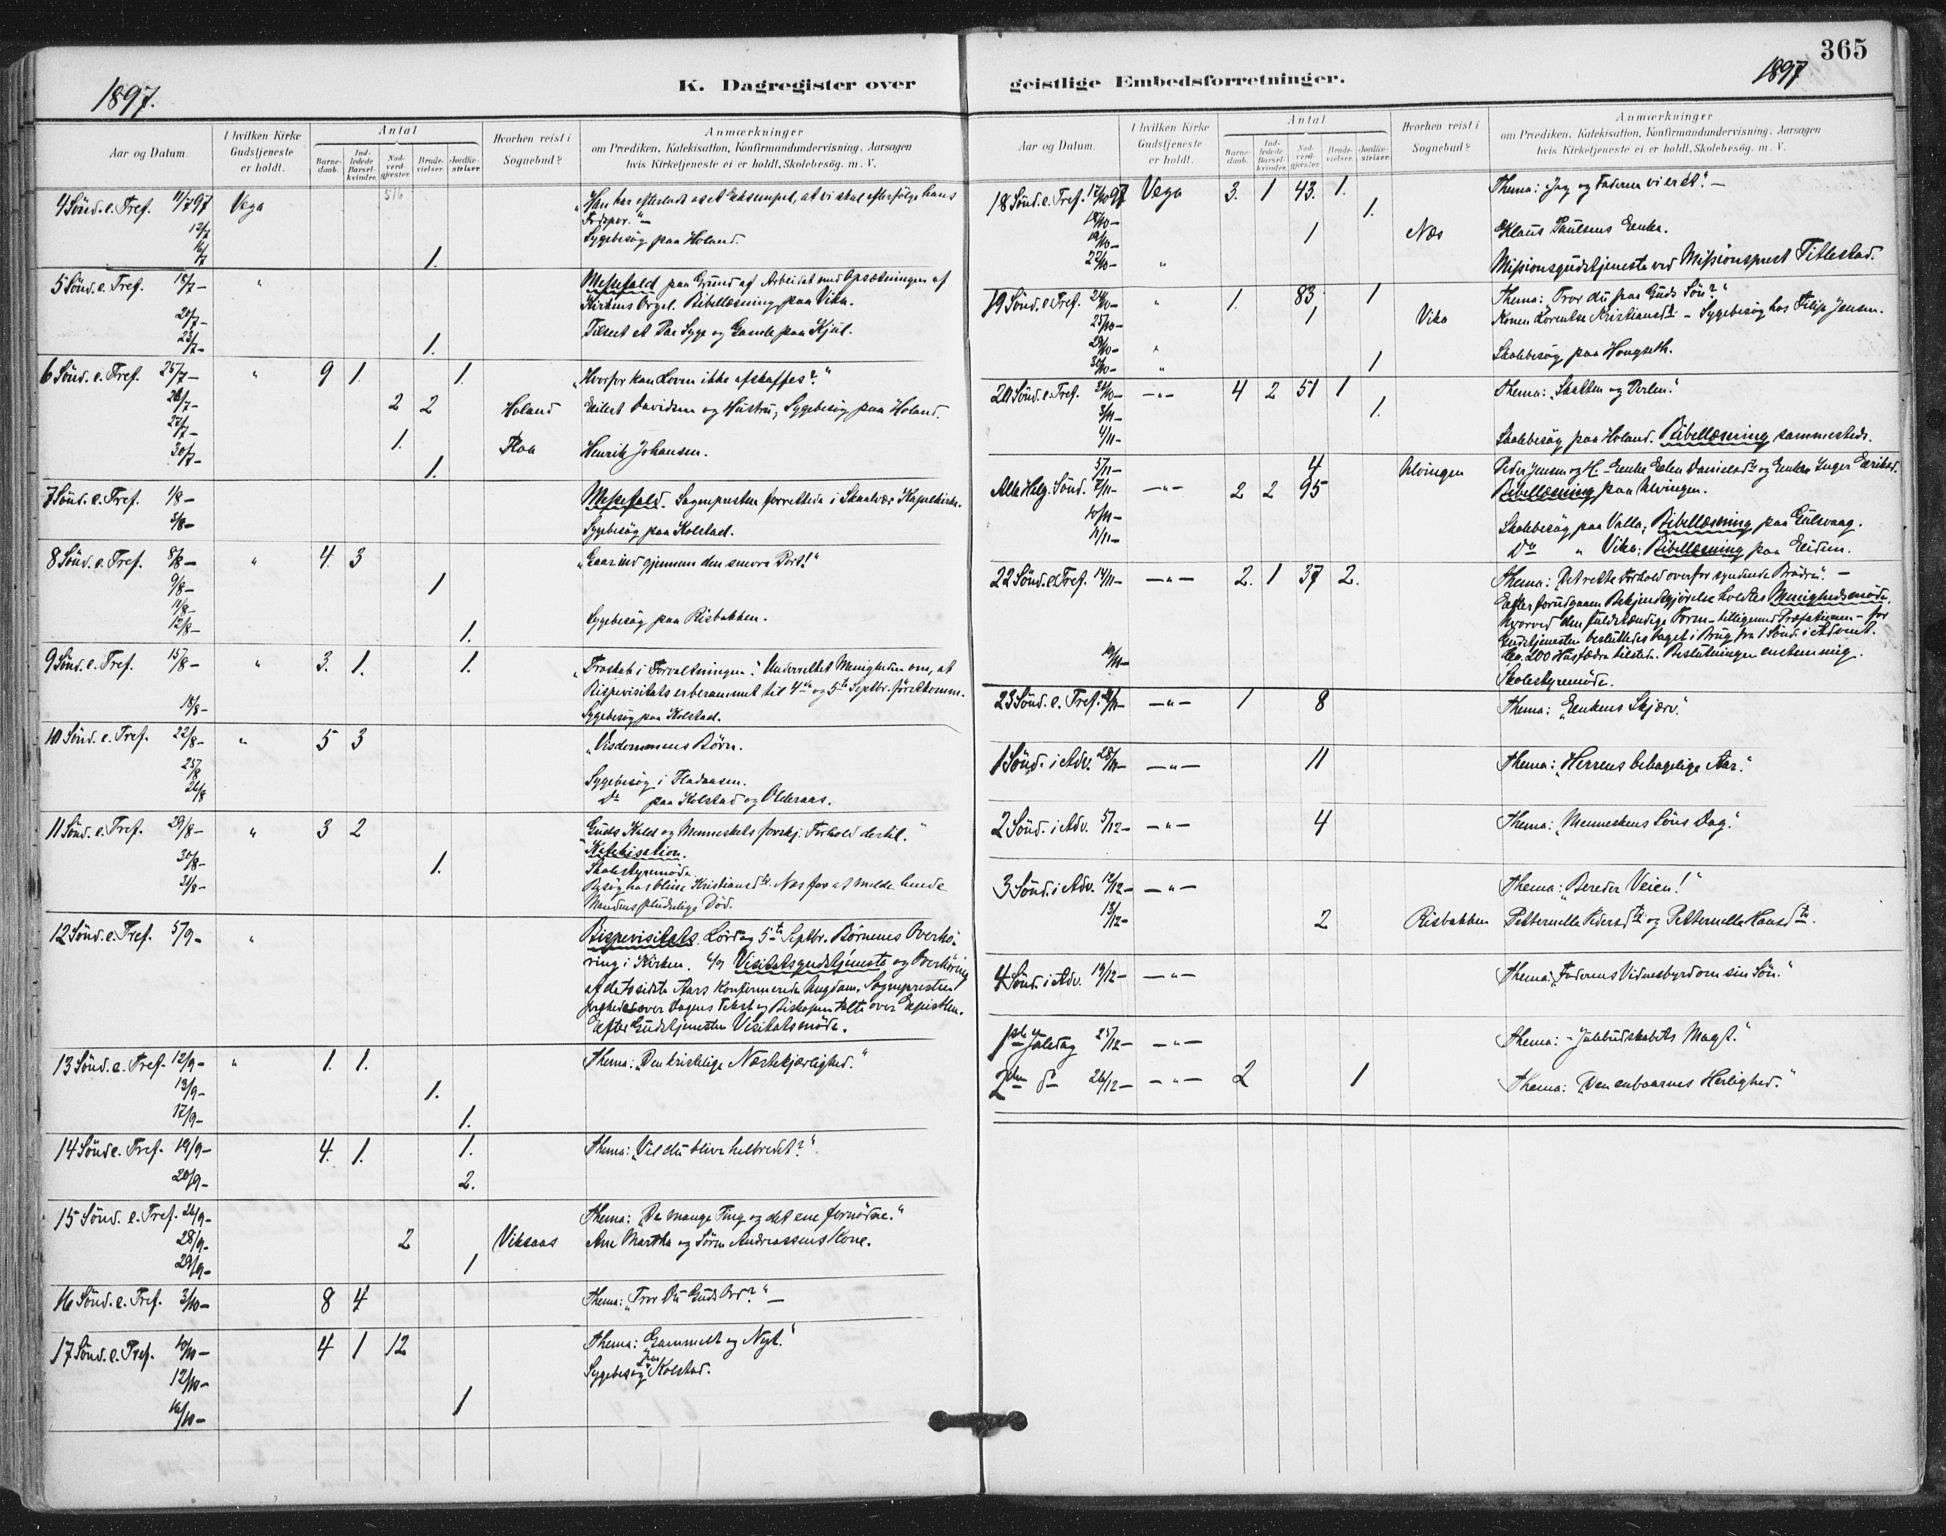 365
1897.
1897
K. Dagregister over
geistlige Embedsforretninger.
Aar og Datum.
I hvilken Kirke Gudstjeneste er holdt.
Antal
Barnedaab.
Indledede Barselkvinder.
Nadverdgjester.
Brudevielser.
Jordfæstelser.
Hvorhen reist i Sognebud?
Anmærkninger
om Prædiken, Katekisation, Konfirmandundervisning. Aarsagen
hvis Kirketjeneste ei er holdt, Skolebesøg. m. V.
4 Sønd. e. Tref. 11/7 97 Vega 516 "Han har efterladt os et Eksempel, at vi skal efterfølge hans
Fodspor."
12/7 Sygebesøg paa Holand.
16/7 1.
5 Sønd. e. Tref. 18/7 - " Messefald paa Grund af Arbeidet med Opsætningen af
Kirkens Orgel. Bibellæsning paa Vika.
Tilseet et Par Syge og Gamle paa Kjul.
23/7 - 1.
6 Sønd. e. Tref. 25/7 - " 9 1. 1. "Hvorfor kan Loven ikke afskaffes?"
26/7 - 2 2 Holand Eilert Davidsen og Hustru, Sygebesøg paa Holand.
27/7 - 1. Floa Henrik Johansen.
30/7 - 1.
7 Sønd. e. Tref. 1/8 - Messefald. Sognepresten forrettede i Skaalvær Kapelkirke.
3/8 - Sygebesøg paa Kolstad.
8 Sønd. e. Tref. 8/8 - " 4. 3 "Gaar ind gjennem den snevre Port!"
9/8 - 1
11/8 - Sygebesøg paa Risbakken.
12/8 - 1.
9 Sønd. e. Tref. 15/8 - " 3. 1. 1. "Troskab i Forvaltningen." Underrettet Menigheden om, at
Bispevisitats er berammet til 4de og 5te Septbr. førstkomm.
18/8 - Sygebesøg paa Kolstad.
10 Sønd. e. Tref. 22/8 - " 5 3 "Visdommens Børn.
25/8 Sygebesøg i Fladaasen.
26/8 Do paa Kolstad og Olderaas.
11 Sønd. e. Tref. 29/8 - " 3 2 Guds Kald og Menneskets forskj. Forhold dertil."
Katekisation.
30/8 - 1. Skolestyremøde
31/8 - Besøg hos Kristiansdtr. Næs for at melde hende
Mandens pludselige Død.
12 Sønd. e. Tref. 5/9 - " Bispevisitats. Lørdag Septbr. Børnenes Overhø-
ring i Kirken. Visitatsgudstjeneste og Overhøring
af de to sidste Aars Konfirmerede Ungdom. Sognepresten
over Dagens Tekst og Biskopen talte over Epistlen.
Efter Gudstjenesten Visitatsmøde.
13 Sønd. e. Tref. 12/9 - " 1. 1. Thema: "Den kristelige Næstekjærlighed."
13/9 - 1.
17/9 - 1.
14 Sønd e. Tref. 19/9 - 4. 1. 1. Thema: "Vil du blive helbredet?"
20/9 - 2.
15 Sønd. e. Tref. 26/9 - Thema: De mange Ting og det ene fornødne."
28/9 - 2 Viksaas Ane Martha og Søren Andreassens Kone.
29/9 - 1
16 Sønd. e. Tref. 3/10 - 8 4 Thema: "Tror Du Guds Ord?" -
17 Sønd. e. Tref. 10/10 - 4 1 12 Thema: Gammelt og Nyt."
12/10 - Sygebesøg paa Kolstad.
16/10 - 1
Aar og Datum.
I hvilken Kirke Gudstjeneste er holdt.
Antal
Barnedaab.
Indledede Barselkvinder.
Nadverdgjester.
Brudevielser.
Jordfæstelser.
Hvorhen reist i Sognebud?
Anmærkninger
om Prædiken, Katekisation, Konfirmandundervisning. Aarsagen
hvis Kirketjeneste ei er holdt, Skolebesøg. m. V.
18 Sønd. e. Tref. 17/10 97 Vega 3. 1 43. 1. Thema: "Jeg og Faderen vi er et." -
18/10 - 1.
19/10 - 1 Næs Klaus Paulsens Enke.
22/10 - " Missionsgudstjeneste ved Missionsprest Titlestad.
19 Sønd. e. Tref. 24/10 - " 1. 83 1 Thema: Tror du paa Guds Søn?"
25/10 - 1 Vika Konen Lorentse Kristiansdtr - Sygebesøg hos Filip Jensen.
29/10 - " Skolebesøg paa Hongseth.
30/10 - " 1
20 Sønd. e. Tref. 31/10 - - " - 4 2 51 1 Thema: "Skatten og Perlen."
3/11 - 1.
4/11 - Skolebesøg paa Holand. Bibellæsning sammesteds.
5/11 - 4 Ulvingen Peder Jensen og H. - Enke Elen Danielsdtr og Enke Inger Eriksd.
Alle Helg. Sønd. 7/11 - - " - 2 2 95 Bibellæsning paa Ulvingen.
10/11 - Skolebesøg paa Valla; Bibellæsning paa Gulsvaag.
11/11 - Do " Vika; Bibellæsning paa Eidem.
22 Sønd. e. Tref. 14/11 - - " - 2. 1 37 2. Thema: "Det rette Forhold overfor syndende Brødre". -
Efter forudgaaen Bekjendtgjørelse holdtes Menighedsmøde,
hvorved den fuldstændige Form - tilligemed Præfationen - for
Gudstjenesten besluttedes taget i Brug fra 1 Sønd. i Advent.
Ca. 200 Husfædre tilstede. Beslutningen enstemmig.
19/11 - Skolestyremøde.
23 Sønd. e. Tref. 21/11 - - " - 1 8 Thema: "Enkens Skjærv."
1 Sønd. i Adv. 28/11 - - " - 11 Thema: "Herrens behagelige Aar."
2 Sønd. i Adv. 5/12 - - " - 4 Thema: "Menneskens Søns Dag."
3 Sønd. i Adv. 12/12 - - " - Thema: "Bereder Veien!"
13/12 - 2 Risbakken Petternelle Pedersdtr og Petternelle Hansdtr.
4 Sønd. i Adv. 19/12 - - " - Thema: Faderens Vidnesbyrd om sin Søn."
1ste Juledag 25/12 - - " - Thema: - Julebudskabets Magt."
2den do 26/12 - - " - 2 1 Thema: "Den enbaarnes Herlighed."